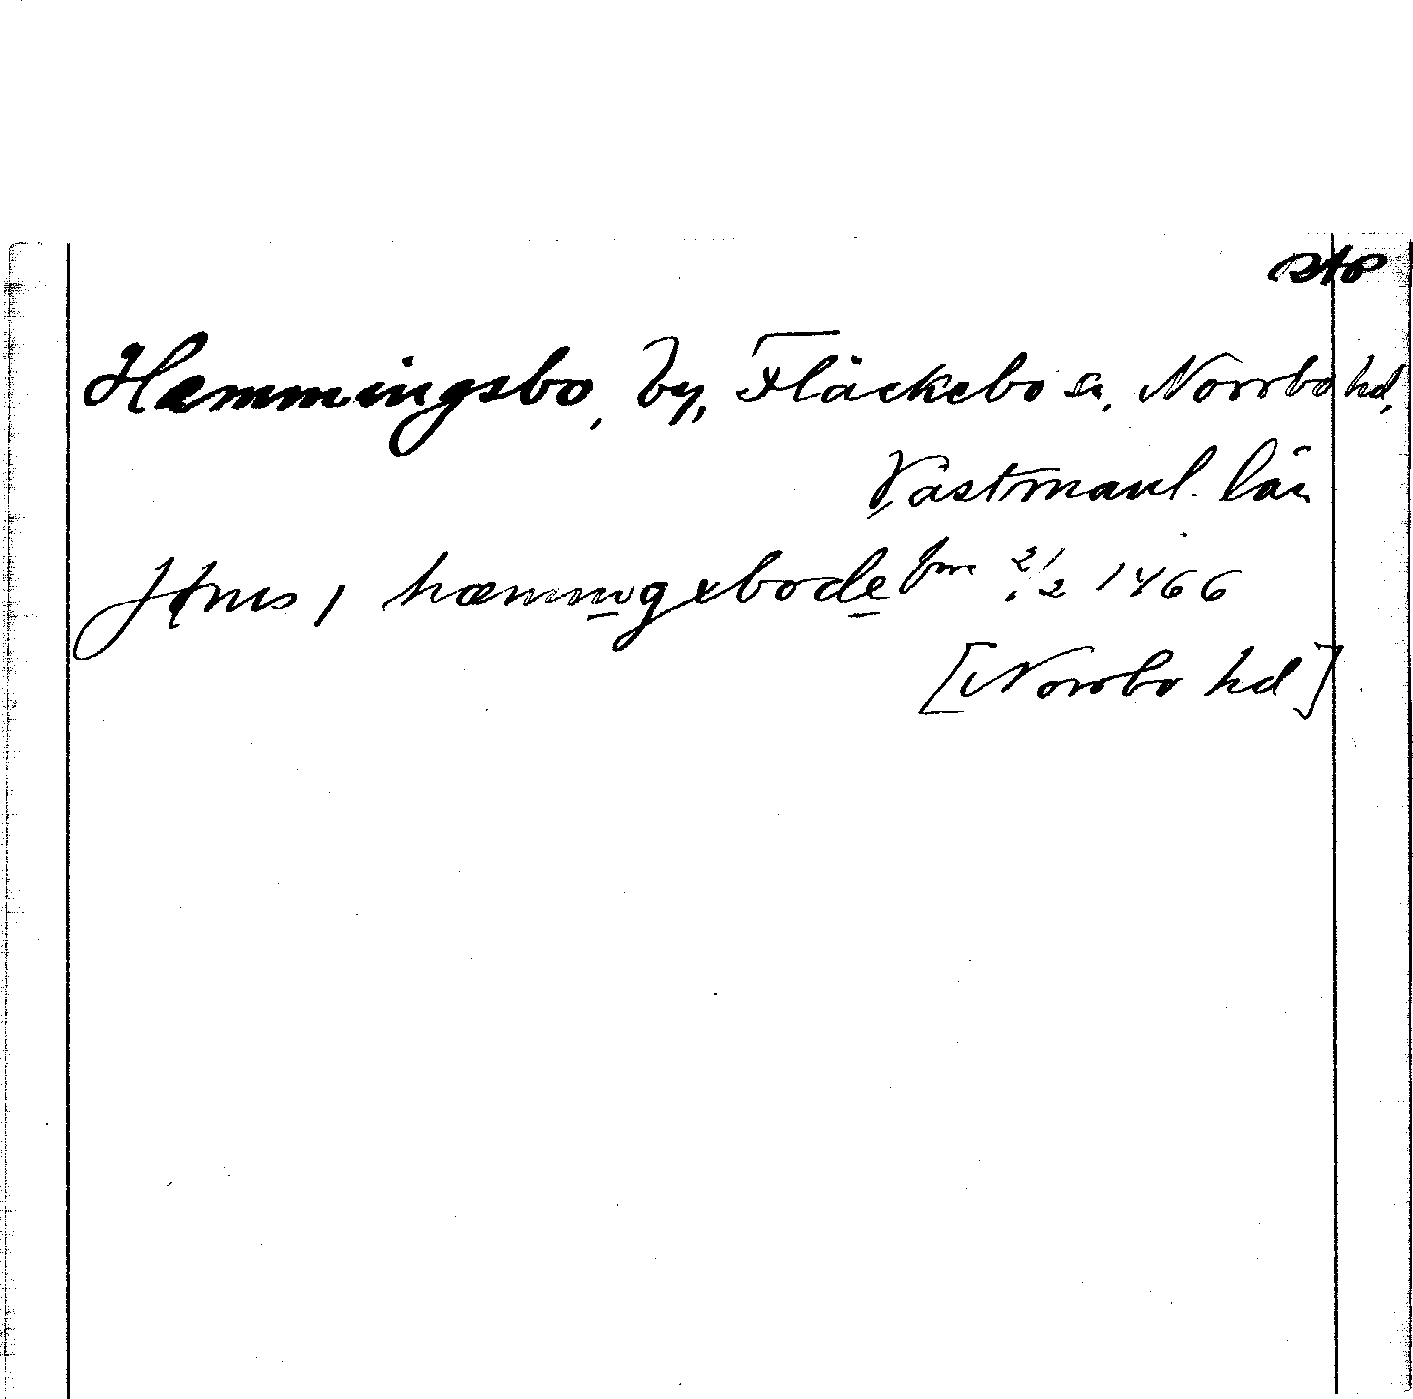 sto
Hemmingsbo, by, Fläckebo sn, Norrbo hd,
Västmanl. län
Jönis, i hæmmngxbode fm 2/2 1466
[Norrbo hd]